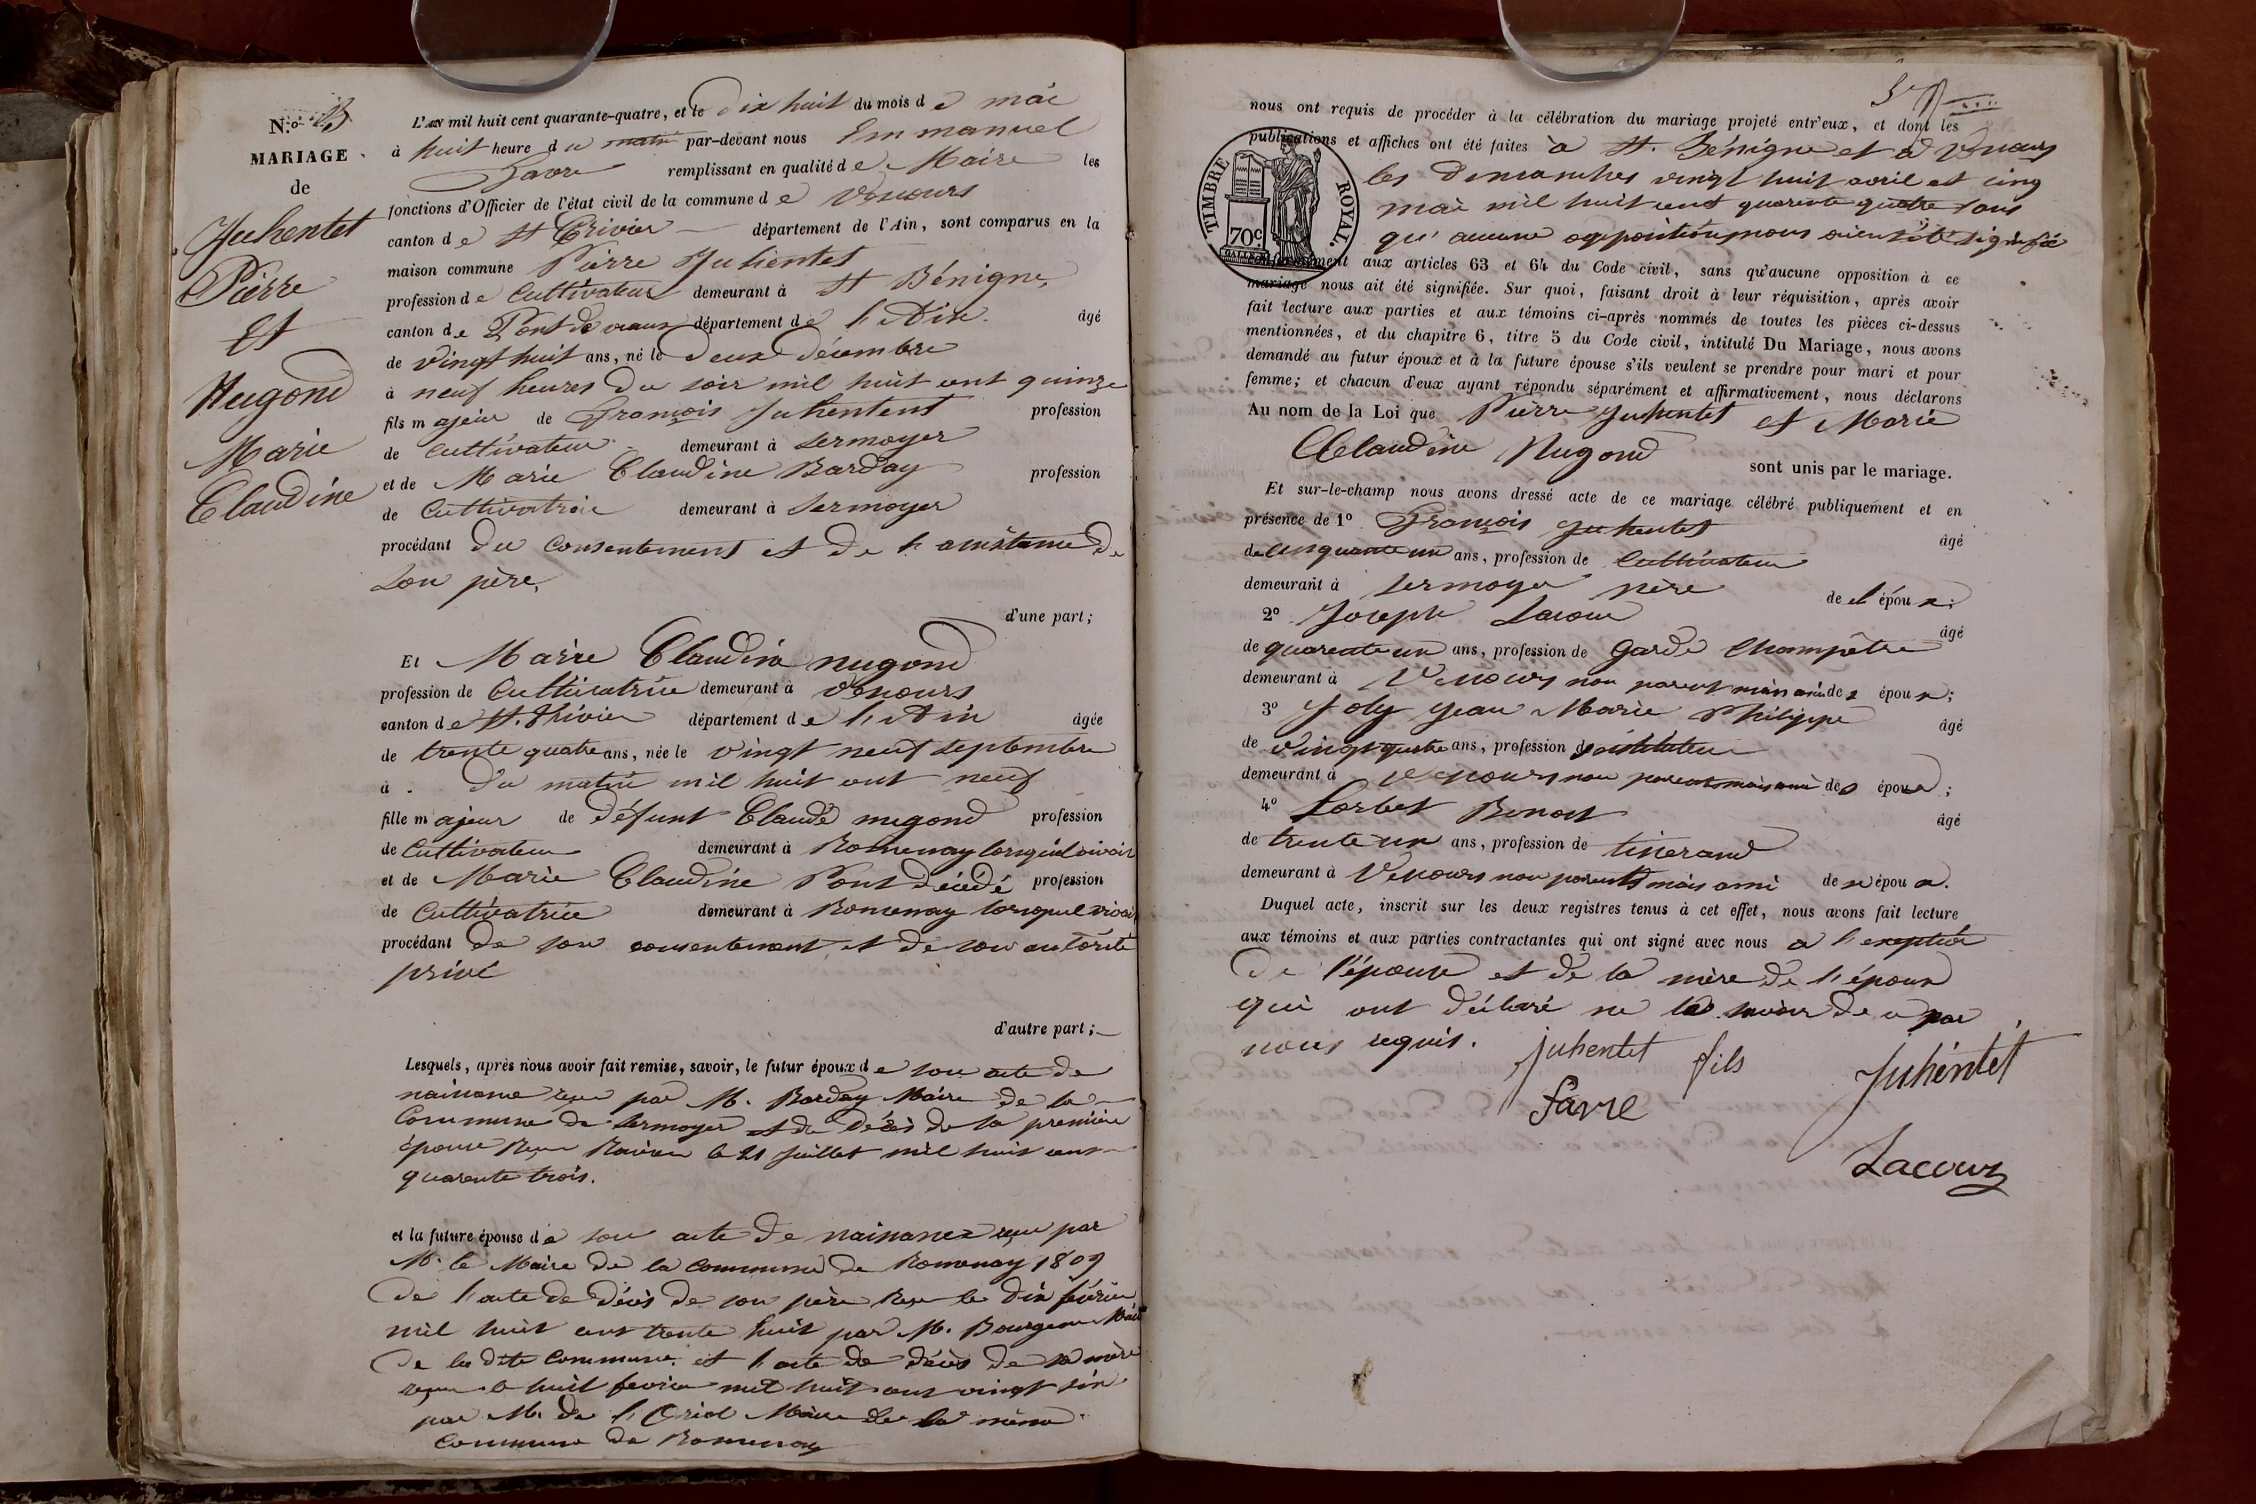 N.º 23
MARIAGE
de
Juhentet
Pierre
et
Nugond
Marie
Claudine
L'AN mil huit cent quarante-quatre, et le dix huit du mois de mai
à huit heure du matin par-devant nous Emmanuel
Favre remplissant en qualité de Maire les
fonctions d'Officier de l'état civil de la commune de Vénours
canton de St Trivier département de l'Ain, sont comparus en la
maison commune Pierre Juhentet
profession de Cultivateur demeurant à St Bénigne,
canton de Pont de vaux département de l'Ain. âgé
de vingt huit ans, né le deux Décembre
à neuf heures du soir mil huit cent quinze
fils majeur de François Juhentent profession
de Cultivateur demeurant à Sermoyer
et de Marie Claudine Barday profession
de Cultivatrice demeurant à Sermoyer
procédant du consentement et de l'assistance de
son père,
d'une part;
Et Marie Claudine nugond
profession de Cultivatrice demeurant à Vénours
canton de St. Trivier département de l'Ain âgée
de trente quatre ans, née le vingt neuf septembre
à du matin mil huit cent neuf
fille majeur de défunt Claude nugond profession
de Cultivateur demeurant à Romenay lorsqu'il vivoit
et de Marie Claudine Pont décédé profession
de Cultivatrice demeurant à Romenay lorsquel vivoit
procédant de son consentement et de son autorité
privé
d'autre part;
Lesquels, après nous avoir fait remise, savoir, le futur époux de son acte de
naissance reçu par M. Barday Maire de la
Commune de Sermoyer et du Décès de la première
épouse Reçu le 21 Juillet mil huit cent
quarente trois.
et la future épouse de son acte de naissance reçu par
M. le Maire de la commune de Romenay 1809
De l'acte de décès de son père Reçu le dix février
mil huit cent trente huit par M. Bourgeon Maire
de la dite Commune. et l'acte de décès de sa mère
reçu le huit fevrier mil huit cent vingt six
par M. de l'Oriol Maire de la même
commune de Romenay
nous ont requis de procéder à la célébration du mariage projeté entr'eux, et dont les
publications et affiches ont été faites à St. Bénigne et à Vénours
les Dimanches vingt huit avril et cinq
mai mil huit cent quarente quatre sans
qu'aucune opposition nous aient été signifié
TIMBRE ROYAL.
70c.
conformément aux articles 63 et 64 du Code civil, sans qu'aucune opposition à ce
mariage nous ait été signifiée. Sur quoi, faisant droit à leur réquisition, après avoir
fait lecture aux parties et aux témoins ci-après nommés de toutes les pièces ci-dessus
mentionnées, et du chapitre 6, titre 5 du Code civil, intitulé Du Mariage, nous avons
demandé au futur époux et à la future épouse s'ils veulent se prendre pour mari et pour
femme; et chacun d'eux ayant répondu séparément et affirmativement, nous déclarons
Au nom de la Loi que Pierre Juhentet et Marie
Claudine Nugond sont unis par le mariage.
Et sur-le-champ nous avons dressé acte de ce mariage célébré publiquement et en
présence de 1º François Juhentet âgé
de cinquante un ans, profession de Cultivateur
demeurant à Sermoyer père de l'époux;
2º Joseph Lacour âgé
de quarente un ans, profession de Garde Champêtre
demeurant à Vénours non parent mais ami des époux;
3º Joly Jean Marie Philippe âgé
de vingt quatre ans, profession d'instituteur
demeurant à Vénours non parent mais ami des époux;
4º Lorbet Benoit âgé
de trente un ans, profession de tisserand
demeurant à Vénours non parents mais ami des époux.
Duquel acte, inscrit sur les deux registres tenus à cet effet, nous avons fait lecture
aux témoins et aux parties contractantes qui ont signé avec nous à l'exeption
De l'épouse et de la mère de l'époux
qui ont déclaré ne le savoir de ce par
nous requis. Juhentet fils Juhéntet
Favre
Lacour